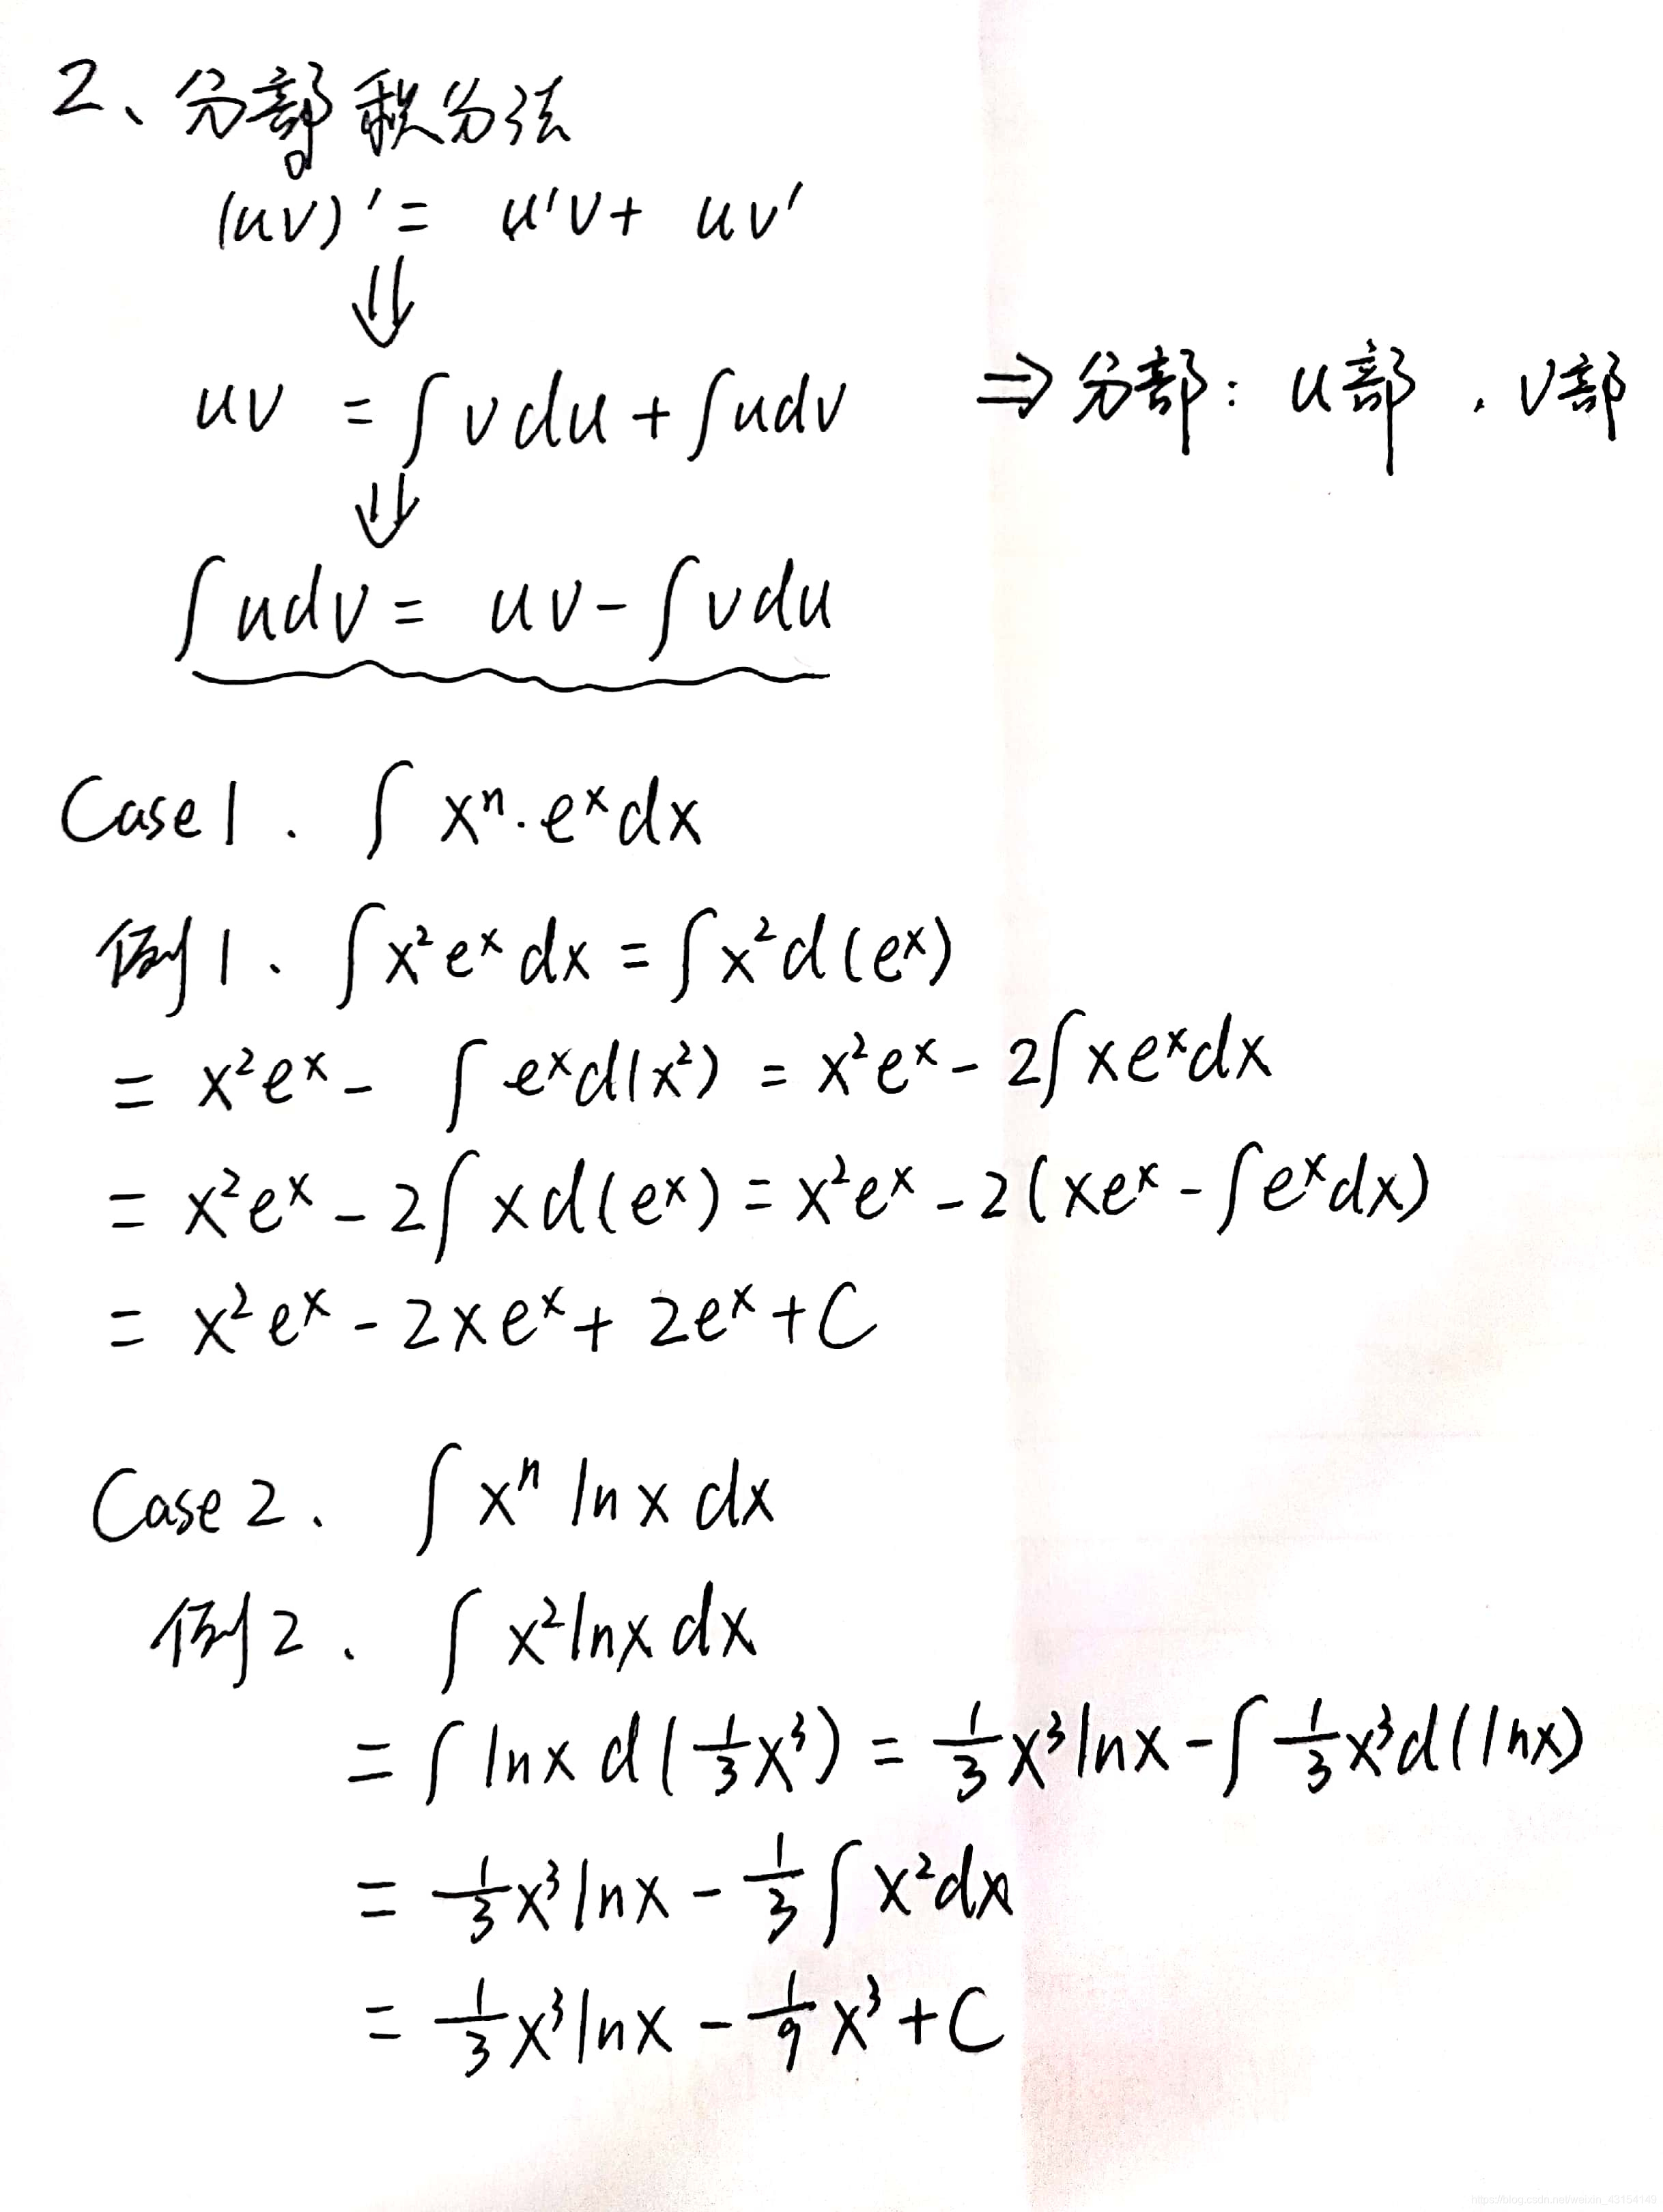 2、分部积分法
(uv)' = u'v + uv'
⇓
uv = ∫vdu + ∫udv ⇒ 分部: u部, v部
⇓
∫udv = uv - ∫vdu
Case1. ∫ xⁿ·eˣdx
例1、∫x²eˣdx = ∫x²d(eˣ)
= x²eˣ - ∫eˣd(x²) = x²eˣ - 2∫xeˣdx
= x²eˣ - 2∫xd(eˣ) = x²eˣ - 2(xeˣ - ∫eˣdx)
= x²eˣ - 2xeˣ + 2eˣ + C
Case 2、∫ xⁿ lnx dx
例2、∫ x²lnx dx
= ∫ lnx d(1/3 x³) = 1/3 x³lnx - ∫ 1/3 x³d(lnx)
= 1/3 x³lnx - 1/3 ∫ x²dx
= 1/3 x³lnx - 1/9 x³ + C
https://blog.csdn.net/weixin_43154149